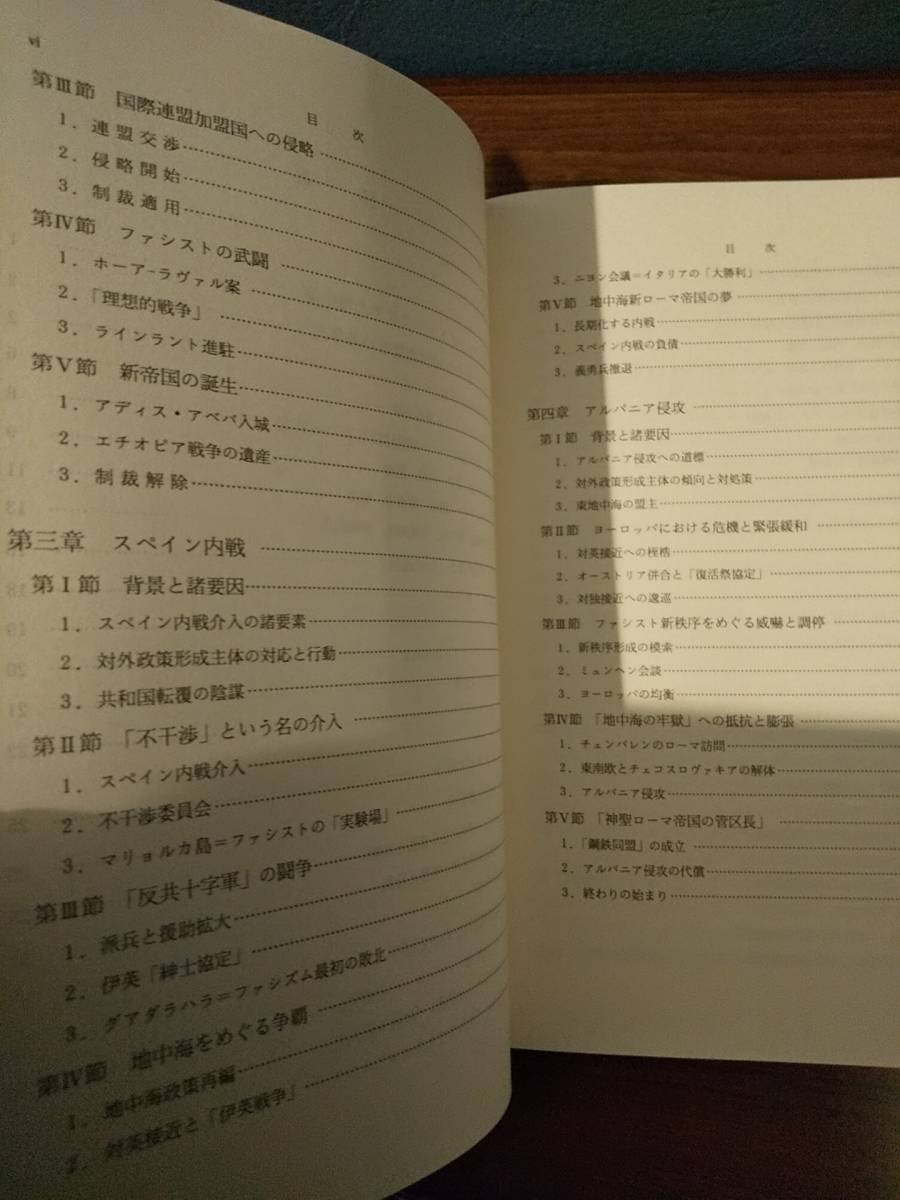 vi
目 次
第Ⅲ節 国際連盟加盟国への侵略
1. 連盟交渉
2. 侵略開始
3. 制裁適用
第Ⅳ節 ファシストの武闘
1. ホーア-ラヴァル案
2. 「理想的戦争」
3. ラインラント進駐
第Ⅴ節 新帝国の誕生
1. アディス・アベバ入城
2. エチオピア戦争の遺産
3. 制裁解除
第三章 スペイン内戦
第Ⅰ節 背景と諸要因
1. スペイン内戦介入の諸要素
2. 対外政策形成主体の対応と行動
3. 共和国転覆の陰謀
第Ⅱ節 「不干渉」という名の介入
1. スペイン内戦介入
2. 不干渉委員会
3. マリョルカ島=ファシストの「実験場」
第Ⅲ節 「反共十字軍」の闘争
1. 派兵と援助拡大
2. 伊英「紳士協定」
3. グアダラハラ=ファシズム最初の敗北
第Ⅳ節 地中海をめぐる争覇
1. 地中海政策再編
2. 対英接近と「伊英戦争」
目 次
3. ニヨン会議=イタリアの「大勝利」
第Ⅴ節 地中海新ローマ帝国の夢
1. 長期化する内戦
2. スペイン内戦の負債
3. 義勇兵撤退
第四章 アルバニア侵攻
第Ⅰ節 背景と諸要因
1. アルバニア侵攻への道標
2. 対外政策形成主体の傾向と対処策
3. 東地中海の盟主
第Ⅱ節 ヨーロッパにおける危機と緊張緩和
1. 対英接近への桎梏
2. オーストリア併合と「復活祭協定」
3. 対独接近への逡巡
第Ⅲ節 ファシスト新秩序をめぐる威嚇と調停
1. 新秩序形成の模索
2. ミュンヘン会談
3. ヨーロッパの均衡
第Ⅳ節 「地中海の牢獄」への抵抗と膨張
1. チェンバレンのローマ訪問
2. 東南欧とチェコスロヴァキアの解体
3. アルバニア侵攻
第Ⅴ節 「神聖ローマ帝国の管区長」
1. 「鋼鉄同盟」の成立
2. アルバニア侵攻の代償
3. 終わりの始まり